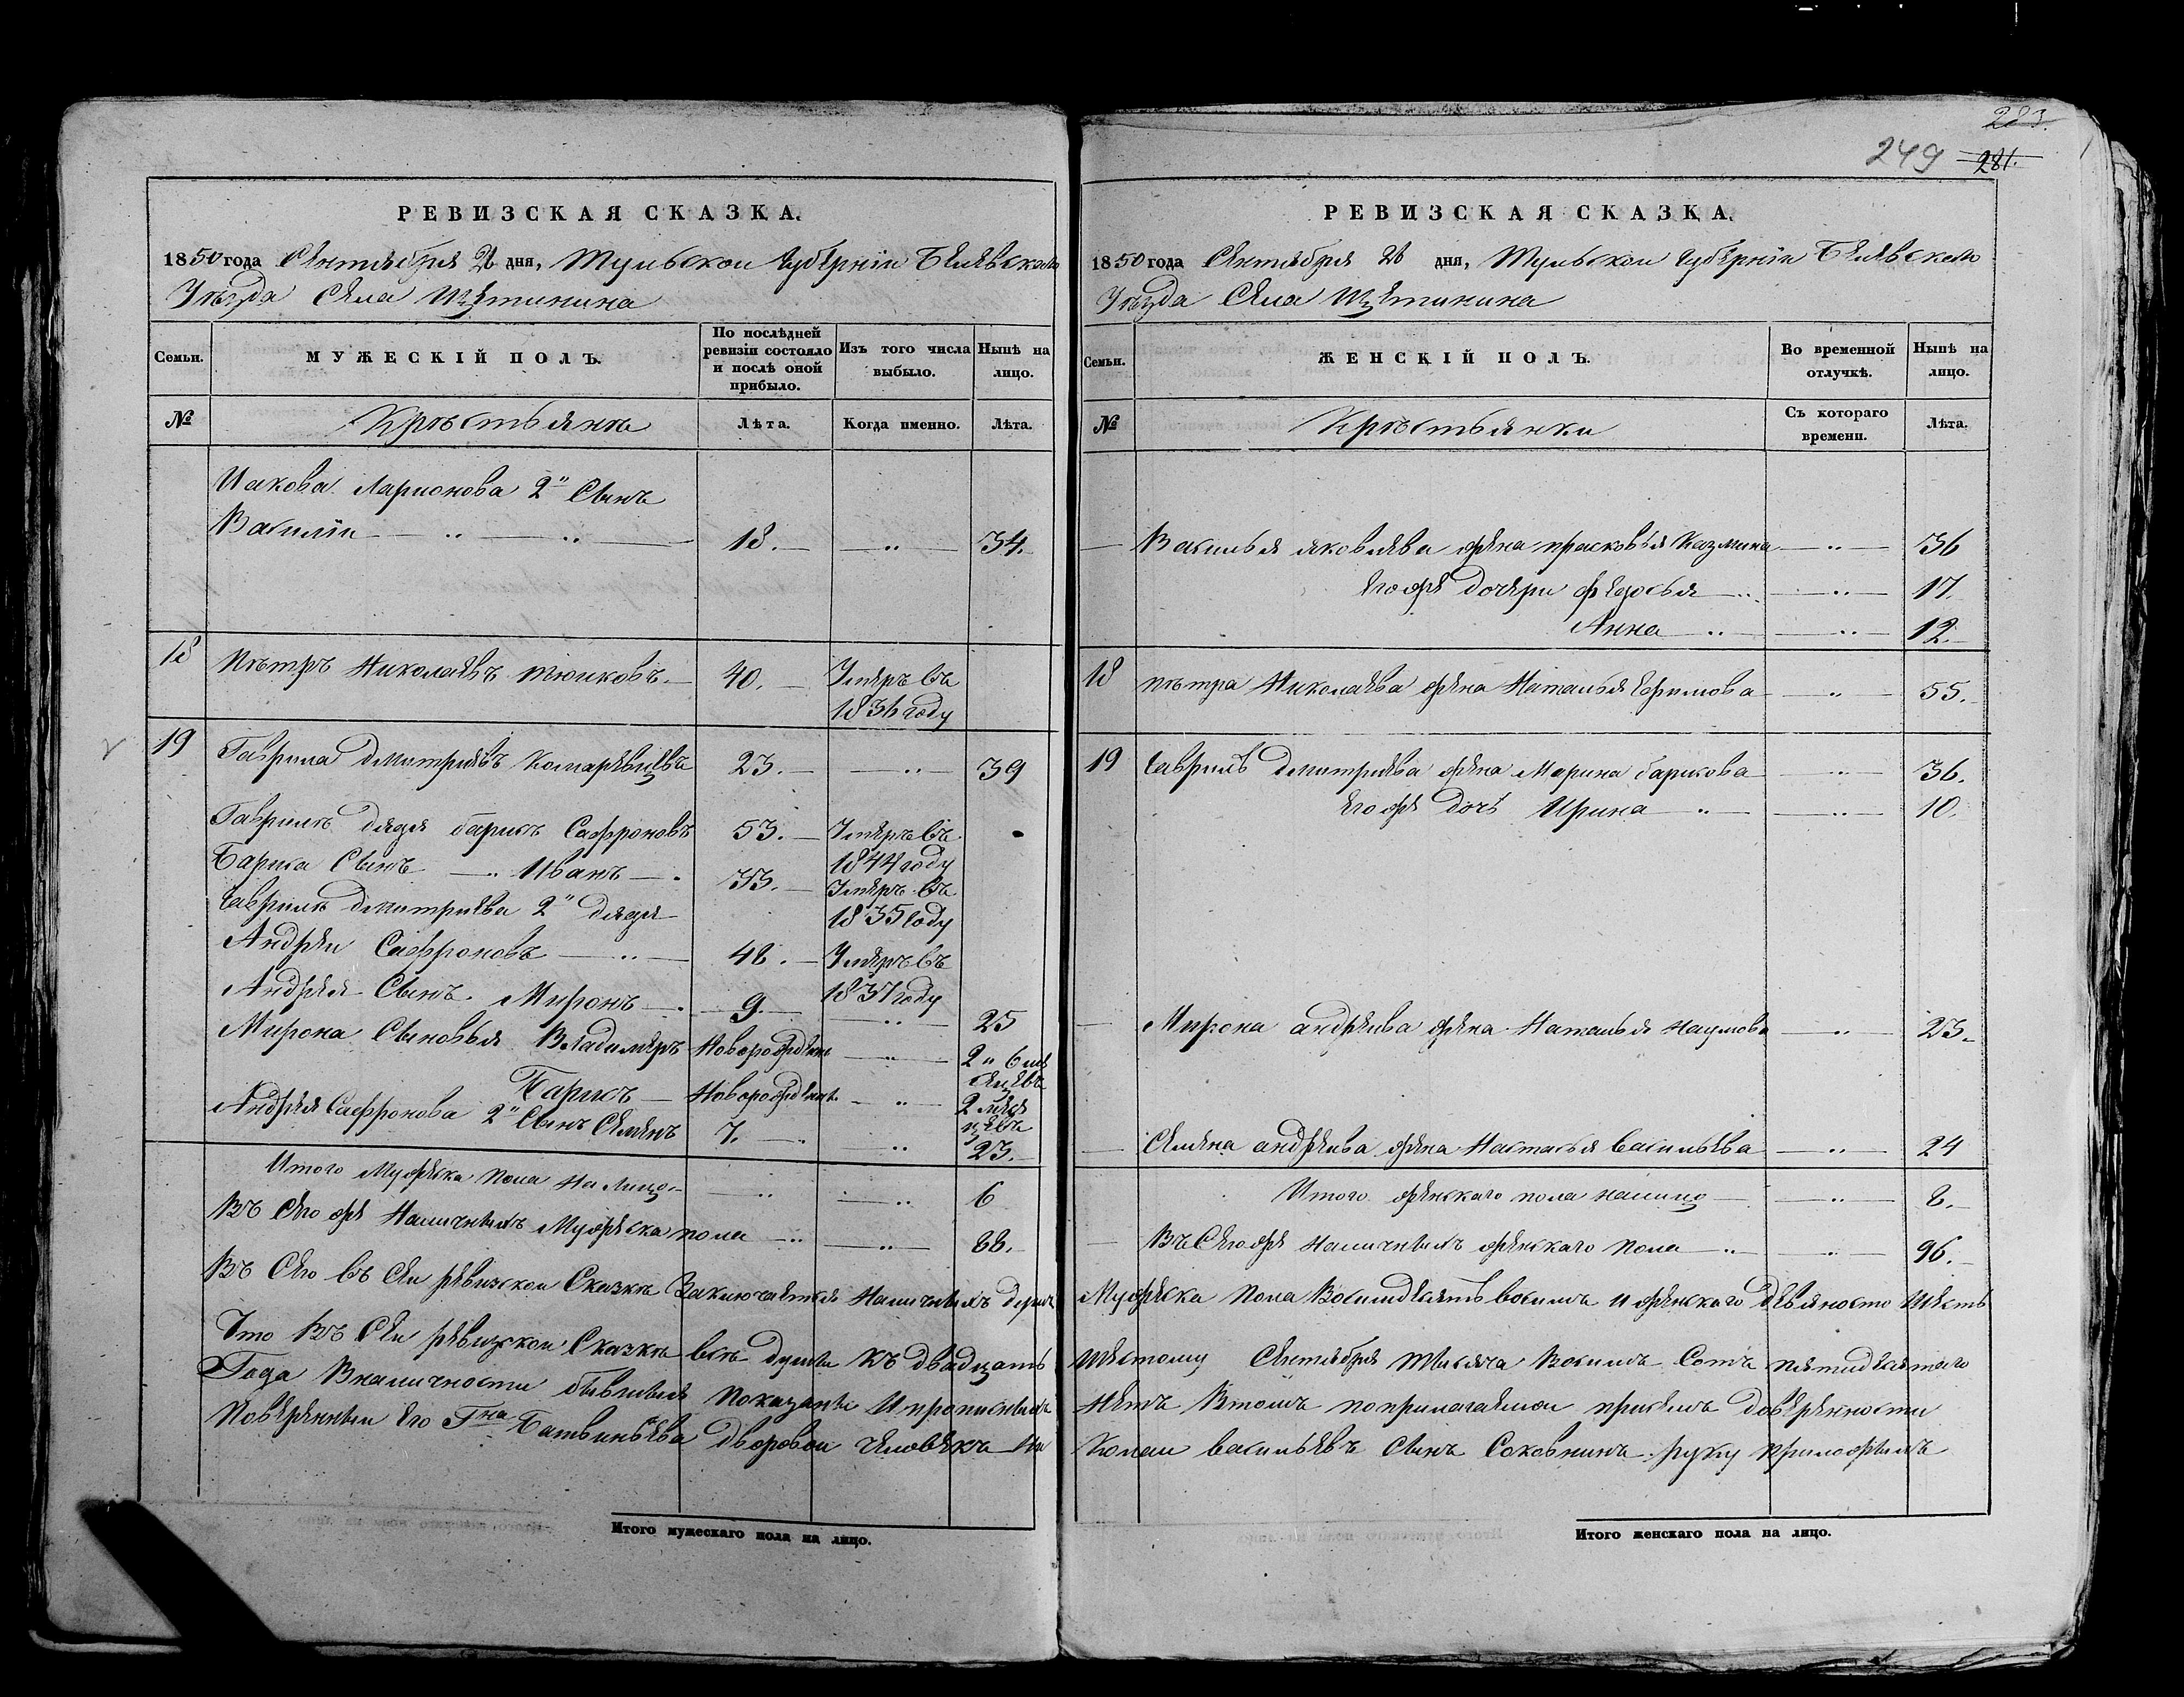 РЕВИЗСКАЯ СКАЗКА.
1850 года Сентября 26 дня, Тульской Губерніи Белевскаго
Уѣзда Села Щетинина
Семьи. МУЖЕСКІЙ ПОЛЪ. По послѣдней ревизіи состояло и послѣ оной прибыло. Изъ того числа выбыло. Нынѣ на лицо.
№ Крѣстьянѣ Лѣта. Когда именно. Лѣта.
Иакова Ларионова 2й Сынъ
Василіи 18. 34.
18 Пѣтръ Николаевъ Тюиковъ 40. Умеръ въ
1836 году
19 Гаврила Дмитриевъ Комаревцевъ 23. 39
Гаврилѣ дядя Барисъ Сафроновъ 53. Умеръ въ
1844 году
Бариса Сынъ Иванъ 33. Умеръ въ
1835 году
Гаврилѣ Дмитриева 2й дядя
Андреи Сафроновъ 48. Умеръ въ
1837 году
Андрея Сынъ Миронъ 9. 25
Мирона Сыновья Владимеръ Новорожденъ 2 " 6 ме
сяцевъ
Барисъ Новорожденъ 2 меся
цевъ
Андрея Сафронова 2й Сынъ Семенъ 7. 23.
Итого Мужеска пола на лицо 6
Въ Сего же Наличныхъ Мужеска пола 88.
Въ Сего въ Сеи ревизскои Сказкѣ Заключается Наличныхъ душъ
Что Въ Сеи ревизскои Сказкѣ всѣ души къ двадцать
Года Вналичности бывшия показаны И прописныхъ
Поверенныи Его Гна Батвиньева дворовои человекъ Ни
Итого мужескаго пола на лицо.
283.
249 281.
РЕВИЗСКАЯ СКАЗКА.
1850 года Сентября 26 дня, Тульскои Губерніи Белевскаго
Уѣзда Села Щетинина
Семьи. ЖЕНСКІЙ ПОЛЪ. Во временной отлучкѣ. Нынѣ на лицо.
№ Крѣстьянки Съ котораго времени. Лѣта.
Василья яковлева жена прасковья Казмина 36
его же дочери федосья 17.
Анна 12.
18 пѣтра Николаева жена Наталья Ефимова 55.
19 Гаврилѣ Дмитриева жена Марина Барисова 36.
его же дочь Ирина 10.
Мирона андреива жена Наталья Наумова 23.
Семена андреива жена Настасья васильева 24
Итого женскаго пола налицо 8.
Въ Сего же наличныхъ женскаго пола 96.
Мужеска пола Восимдесятъ восимъ и женскаго Девяносто Шесть
шестому Сентября тысяча Восимъ Сотъ пятидесятаго
Нетъ Втомъ поприлагаемои присемъ доверенности
Колаи васильевъ Сынъ Соковнинъ руку приложилъ
Итого женскаго пола на лицо.